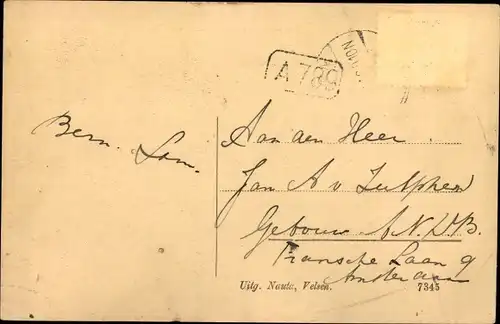 A 789
Bern. Lom.
Aan den Heer
Jan A v Zutphen
Gebouw A.N.D.B.
Fransche Laan 9
Amsterdam
Uitg. Nauta, Velsen. 7345